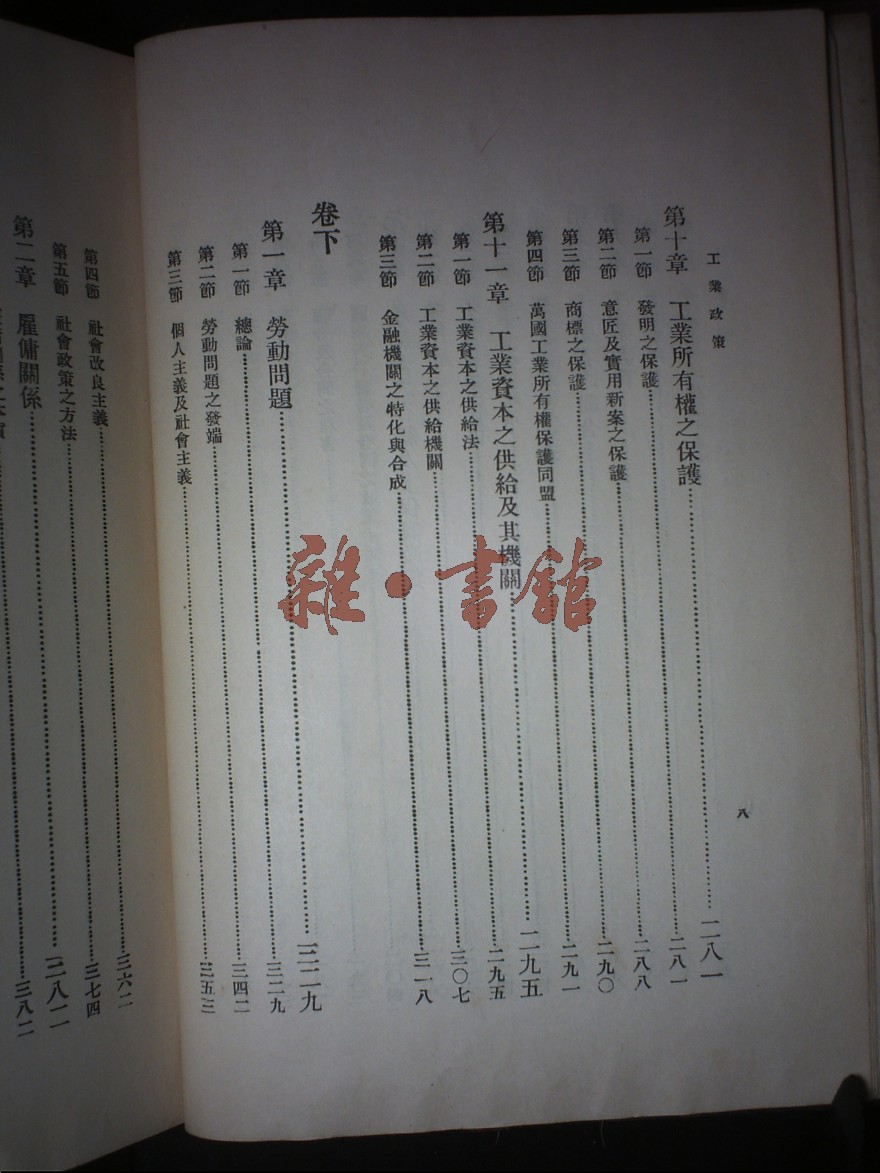 工業政策
八
第十章 工業所有權之保護……二八一
第一節 發明之保護……二八一
第二節 意匠及實用新案之保護……二八八
第三節 商標之保護……二九〇
第四節 萬國工業所有權保護同盟……二九一
第十一章 工業資本之供給及其機關……二九五
第一節 工業資本之供給法……二九五
第二節 工業資本之供給機關……三〇七
第三節 金融機關之特化與合成……三一八
卷下
第一章 勞動問題……三二九
第一節 總論……三二九
第二節 勞動問題之發端……三四二
第三節 個人主義及社會主義……三五三
第四節 社會改良主義……三六二
第五節 社會政策之方法……三七四
第二章 雇傭關係……三八二
三八二
雜·書館